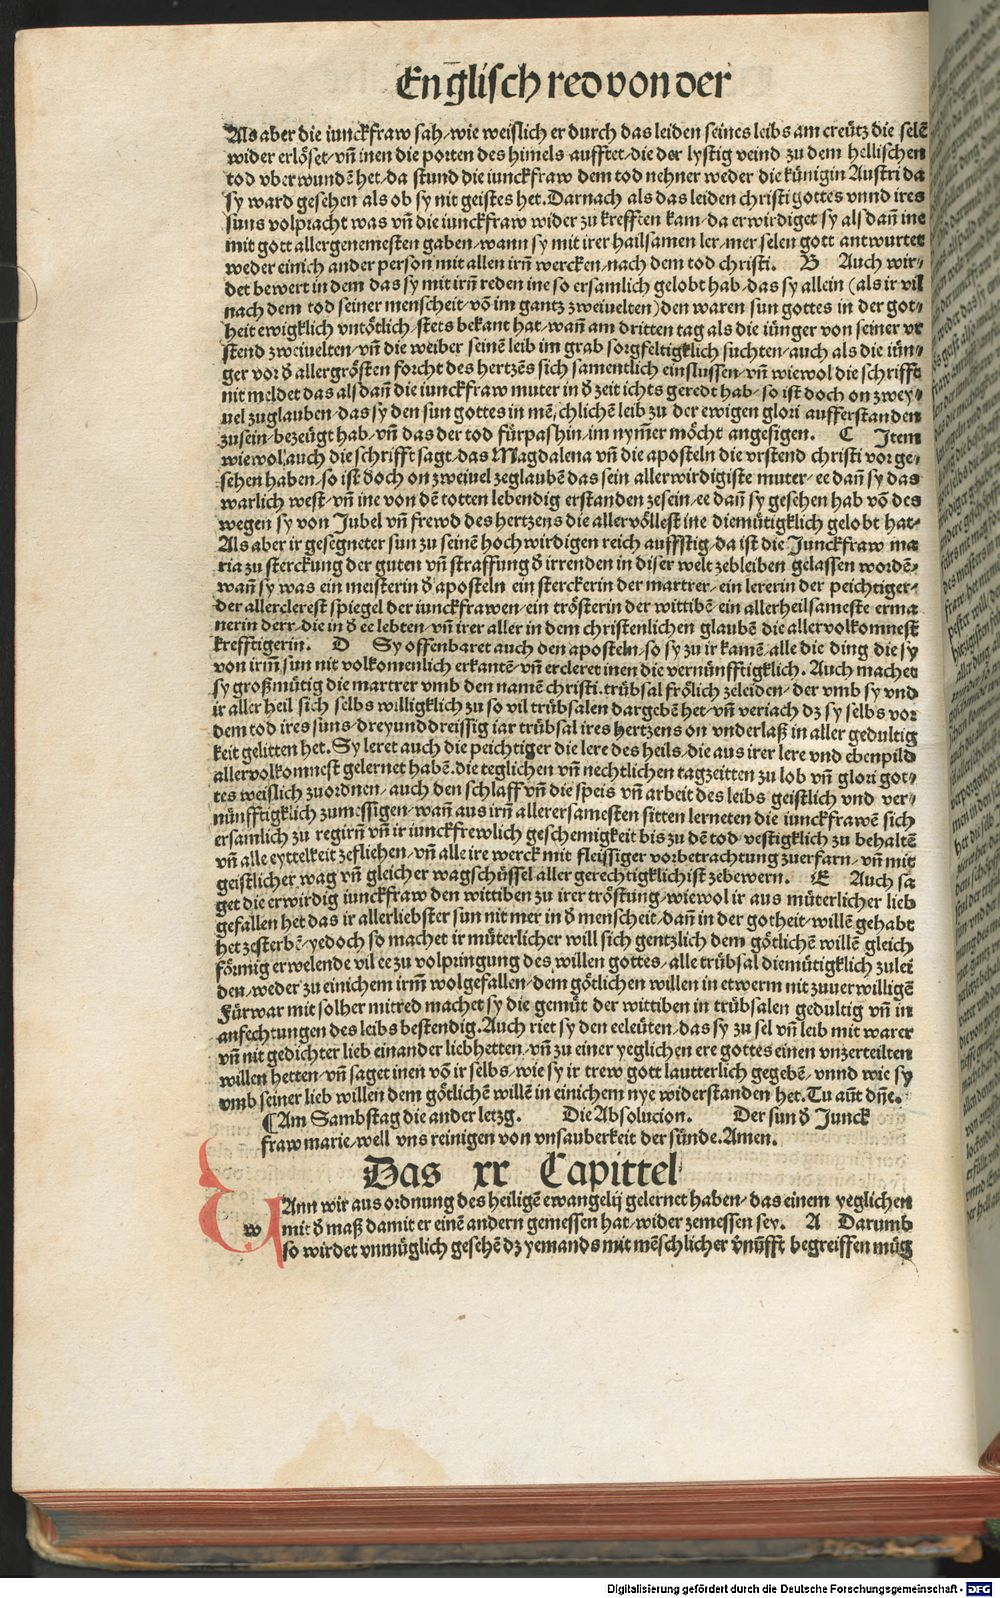 Englisch red von der
Als aber die iunckfraw sah/wie weislich er durch das leiden seines leibs am creütz die selē
wider erlöset/vn̄ inen die porten des himels aufftet/die der lystig veind zu dem hellischen
tod vberwundē het/da stund die iunckfraw dem tod nehner weder die künigin Austri da
sy ward gesehen als ob sy nit geistes het. Darnach als das leiden christi gottes vnnd ires
suns volpracht was vn̄ die iunckfraw wider zu krefften kam/da erwirdiget sy als dan̄ ine
mit gott allergenemesten gaben/wann sy mit irer hailsamen ler/mer selen gott antwurtet
weder einich ander person mit allen irn̄ wercken/nach dem tod christi. B Auch wir/
det bewert in dem das sy mit irn̄ reden ine so ersamlich gelobt hab/das sy allein (als ir vil
nach dem tod seiner menscheit/vō im gantz zweiuelten) den waren sun gottes in der got/
heit ewigklich vntötlich/stets bekant hat/wan̄ am dritten tag als die iünger von seiner vr
stend zweiuelten/vn̄ die weiber seinē leib im grab sorgfeltigklich suchten/auch als die iün/
ger vor ð allergrösten forcht des hertzēs sich samentlich einslussen/vn̄ wiewol die schrifft
nit meldet das als dan̄ die iunckfraw muter in ð zeit ichts geredt hab/so ist doch on zwey/
uel zuglauben/das sy den sun gottes in mēschlichē leib zu der ewigen glori aufferstanden
zusein/bezeügt hab/vn̄ das der tod fürpashin/im nym̄er möcht angesigen. C Item
wiewol auch die schrifft sagt/das Magdalena vn̄ die aposteln die vrstend christi vor ge/
sehen haben/so ist doch on zweiuel zeglaubē das sein allerwirdigiste muter/ee dan̄ sy das
warlich west/vn̄ ine von dē totten lebendig erstanden zesein/ee dan̄ sy gesehen hab vō des
wegen sy von Jubel vn̄ frewd des hertzens die allervöllest ine diemütigklich gelobt hat/
Als aber ir gesegneter sun zu seinē hochwirdigen reich auffstig/da ist die Junckfraw ma
ria zu sterckung der guten vn̄ straffung ð irrenden in diser welt zebleiben gelassen wordē/
wan̄ sy was ein meisterin ð aposteln ein sterckerin der martrer/ein lererin der peichtiger/
der allerclerest spiegel der iunckfrawen/ein trösterin der wittibē/ein allerheilsameste erma
nerin derr/die in ð ee lebten/vn̄ irer aller in dem christenlichen glaubē die allervolkomnest
krefftigerin. D Sy offenbaret auch den aposteln/so sy zu ir kamē/alle die ding die sy
von irm̄ sun nit volkomenlich erkantē/vn̄ ercleret inen die vernünfftigklich. Auch machet
sy großmütig die martrer vmb den namē christi. trübsal frölich zeleiden/der vmb sy vnd
ir aller heil sich selbs willigklich zu so vil trübsalen dargebē het/vn̄ veriach dz sy selbs vor
dem tod ires suns/dreyunddreissig iar trübsal ires hertzens on vnderlaß in aller gedultig
keit gelitten het. Sy leret auch die peichtiger die lere des heils/die aus irer lere vnd ebenpild
allervolkomnest gelernet habē. die teglichen vn̄ nechtlichen tagzeitten zu lob vn̄ glori got/
tes weislich zuordnen/auch den schlaff vn̄ die speis vn̄ arbeit des leibs geistlich vnd ver/
nünfftigklich zumessigen/wan̄ aus irn̄ allerersamesten sitten lerneten die iunckfrawē sich
ersamlich zu regirn̄ vn̄ ir iunckfrewlich geschemigkeit bis zu dē tod/vestigklich zu behaltē
vn̄ alle eyttelkeit zefliehen/vn̄ alle ire werck mit fleissiger vorbetrachtung zuerfarn/vn̄ mit
geistlicher wag vn̄ gleicher wagschüssel aller gerechtigklich ist zebewern. E Auch sa
get die erwirdig iunckfraw den wittiben zu irer tröstung/wiewol ir aus müterlicher lieb
gefallen het das ir allerliebster sun nit mer in ð menscheit/dan̄ in der gotheit/willē gehabt
het zesterbē/yedoch so machet ir müterlicher will sich gentzlich dem götlichē willē gleich
förmig erwelende vil ee zu volpringung des willen gottes/alle trübsal diemütigklich zulei
den/weder zu einichem irm̄ wolgefallen/dem götlichen willen in etwerm nit zuuerwilligē
Fürwar mit solher mitred machet sy die gemüt der wittiben in trübsalen gedultig vn̄ in
anfechtungen des leibs bestendig. Auch riet sy den eeleüten/das sy zu sel vn̄ leib mit warer
vn̄ nit gedichter lieb einander liebhetten/vn̄ zu einer yeglichen ere gottes einen vnzerteilten
willen hetten/vn̄ saget inen vō ir selbs/wie sy ir trew gott lautterlich gegebē/vnnd wie sy
vmb seiner lieb willen dem götlichē willē in einichem nye widerstanden het. Tu aut̄ dn̄e.
¶Am Sambstag die ander letzg. Die Absolucion. Der sun ð Junck
fraw marie/well vns reinigen von vnsauberkeit der sünde. Amen.
Das xx Capittel
WAnn wir aus ordnung des heiligē ewangelij gelernet haben/das einem yeglichen
w mit ð maß damit er einē andern gemessen hat/wider zemessen sey. A Darumb
so wirdet vnmüglich gesehē dz yemands mit mēschlicher v̄nūfft begreiffen müg
Digitalisierung gefördert durch die Deutsche Forschungsgemeinschaft - DFG